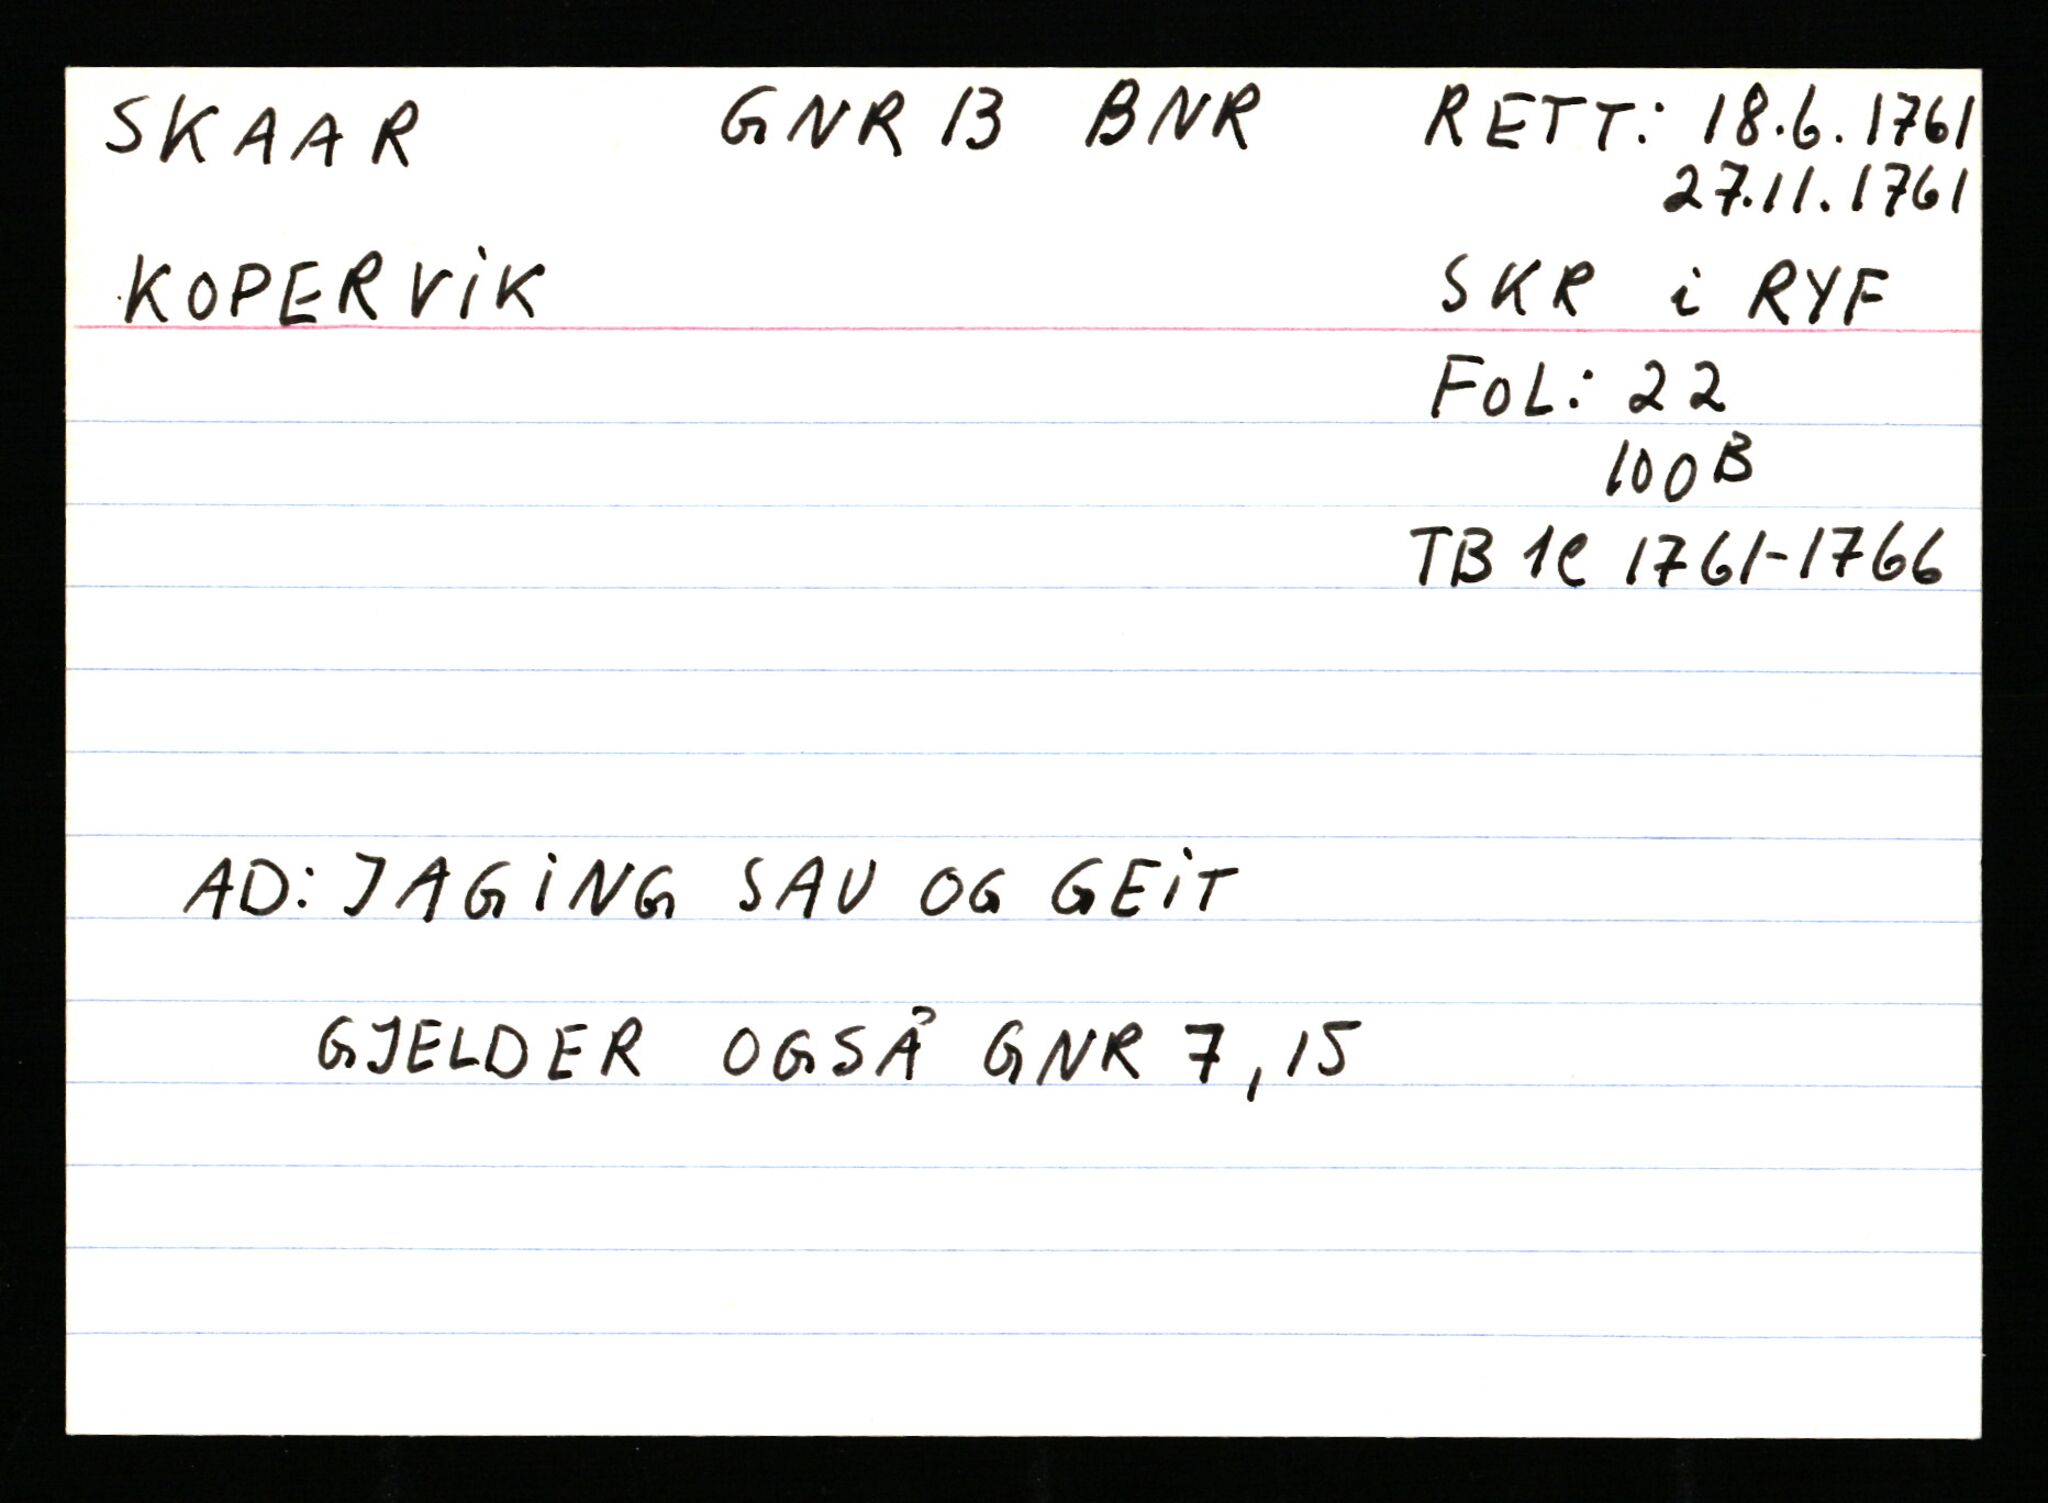 SKAAR GNR 13 BNR RETT: 18.6.1761
27.11.1761
KOPERVIK SKR i RYF
FOL: 22
100B
TB 1e 1761-1766
AD: JAGING SAU OG GEIT
GJELDER OGSÅ GNR 7, 15